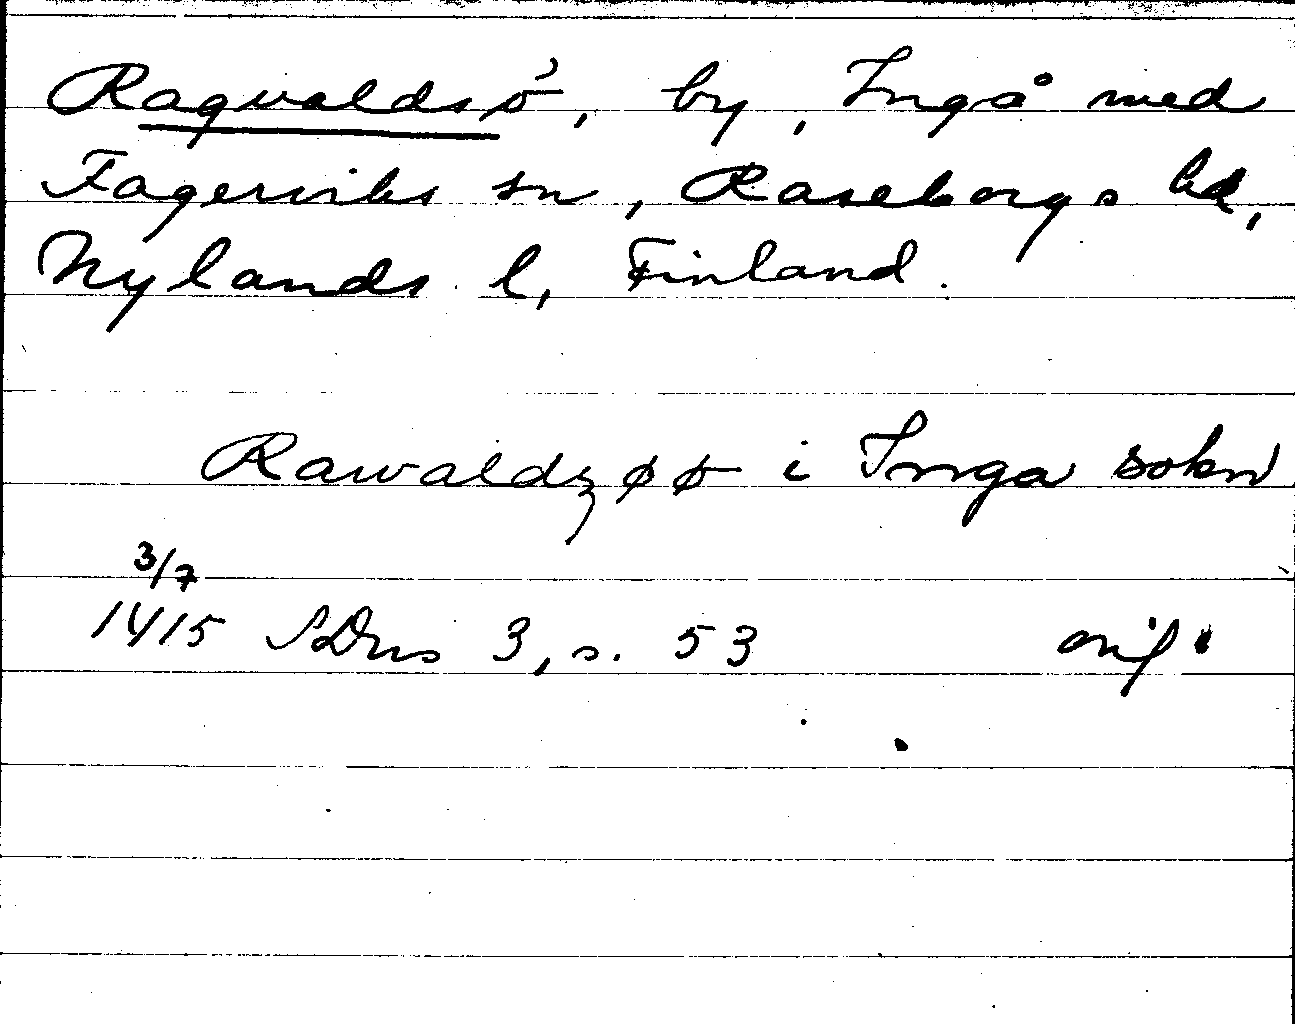 Ragvaldsö, by, Ingå med
Fagerviks sn, Raseborgs hd,
Nylands l, Finland.
Rawaldzøø i Inga sokn
3/7
1415 SDns 3, s. 53 orig.